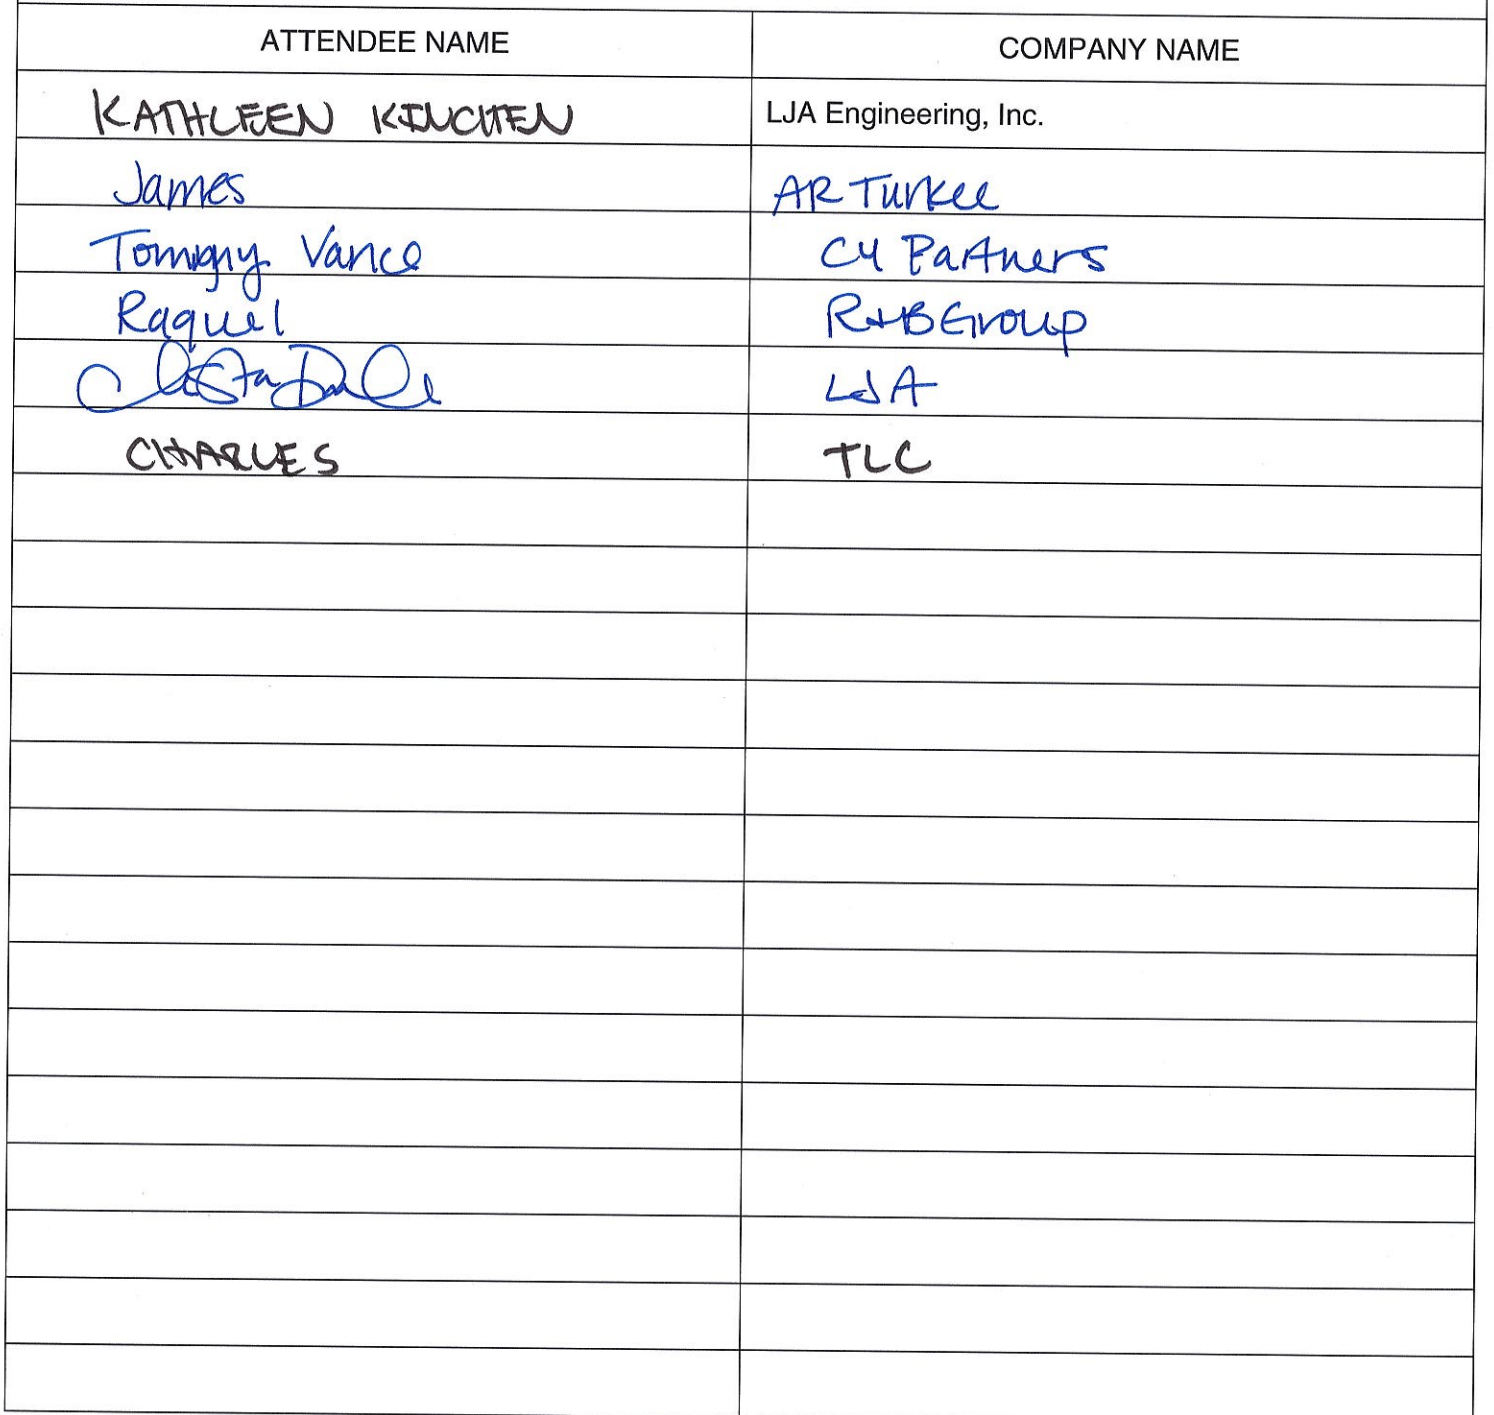 ATTENDEE NAME COMPANY NAME
KATHLEEN KINCHEN LJA Engineering, Inc.
James AR Turkee
Tommy Vance C4 Partners
Raquel R+B Group
LJA
CHARLES TLC